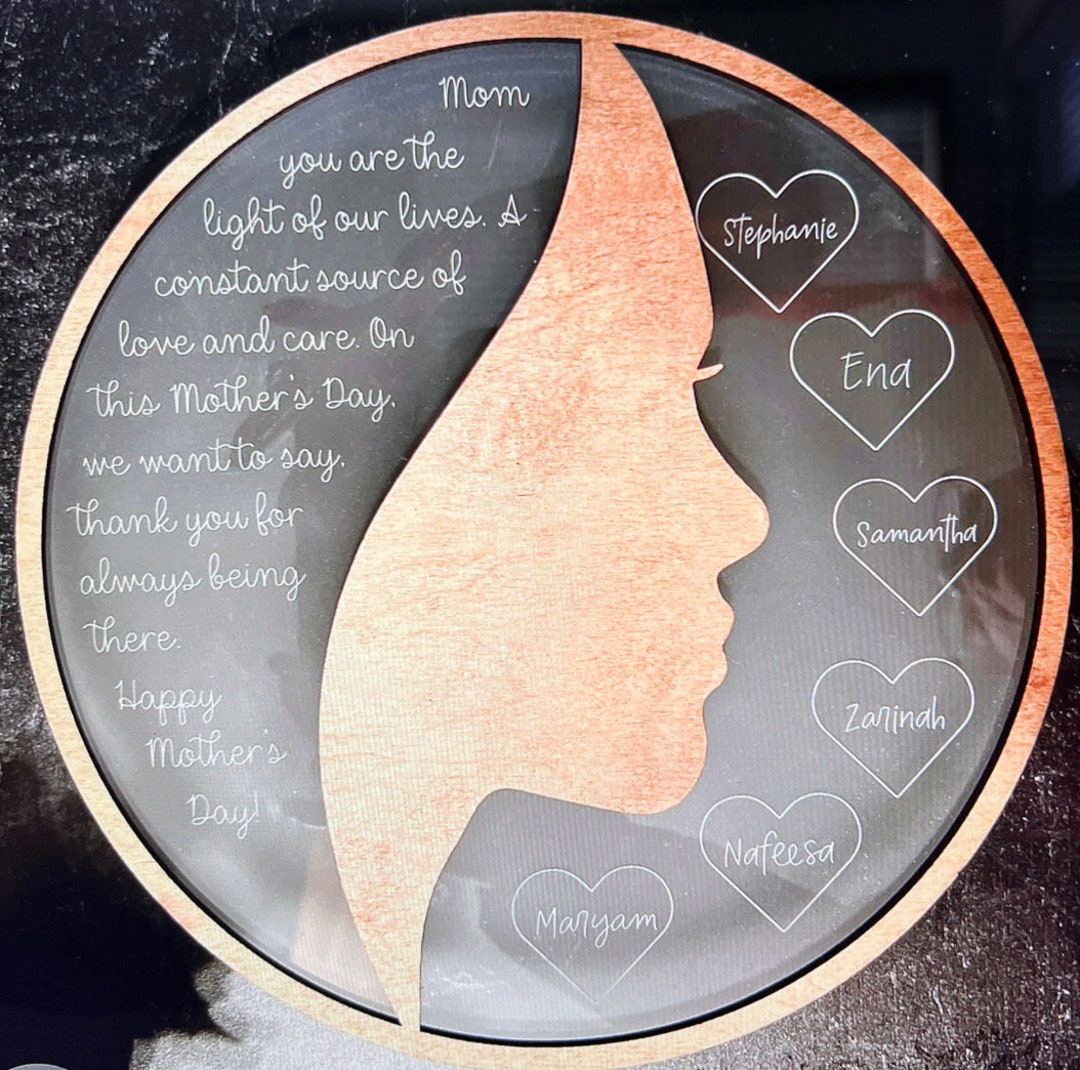 Mom
you are the
light of our lives. A
constant source of
love and care. On
this Mother's Day,
we want to say,
thank you for
always being
there.
Happy
Mother's
Day!
Stephanie
Ena
Samantha
Zarinah
Nafeesa
Maryam